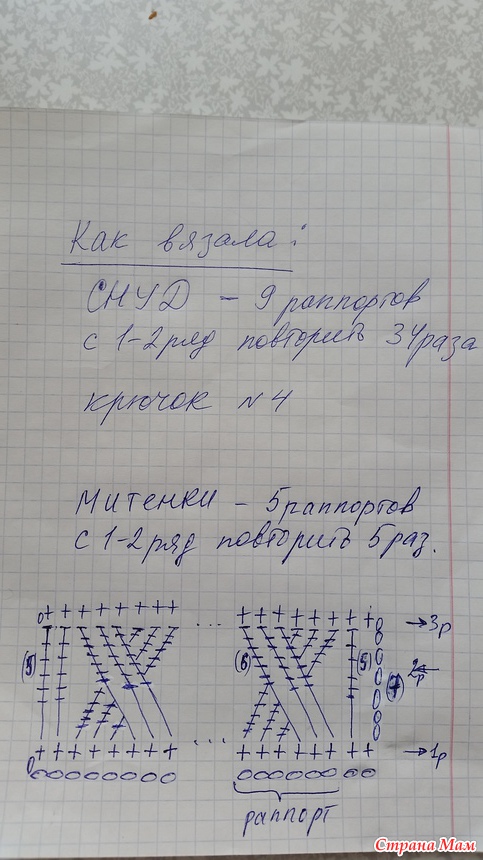 Как вязала:
СНУД – 9 раппортов
с 1-2 ряд повторить 34 раза
крючок №4
Митенки – 5 раппортов
с 1-2 ряд повторить 5 раз.
→3р
(5) (6) (5) (7) 2р
→1р
раппорт
Страна Мам